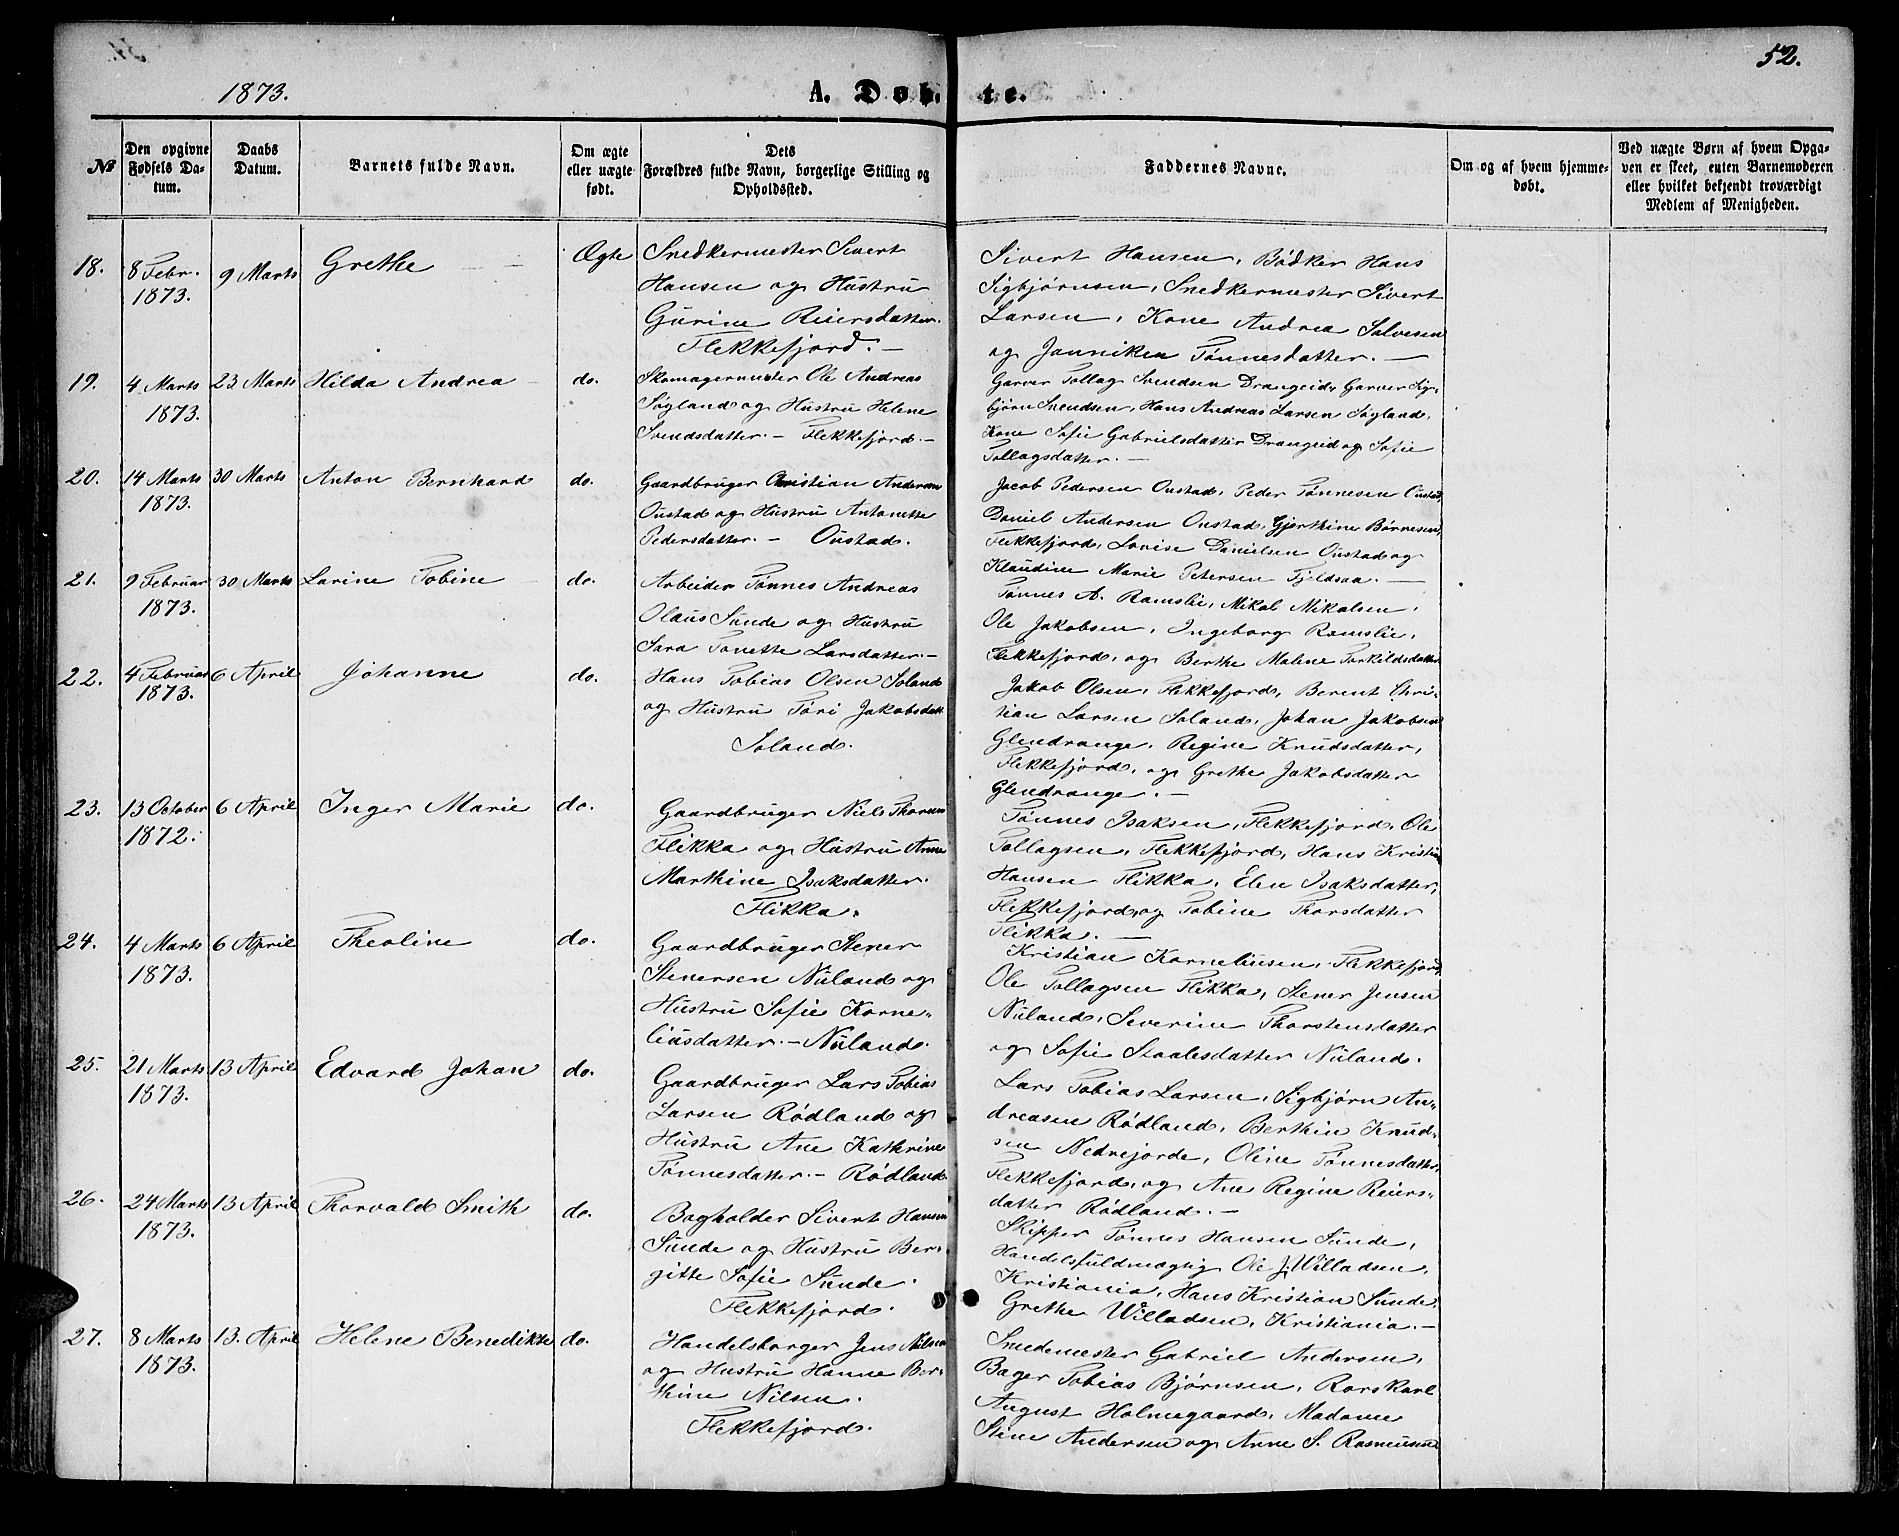 1873.
A. Døbte.
52.
№
Den opgivne Fødsels Datum.
Daabs Datum.
Barnets fulde Navn.
Om ægte eller uægte født.
Dets Forældres fulde Navn, borgerlige Stilling og Opholdssted.
Faddernes Navne.
Om og af hvem hjemmedøbt.
Ved uægte Børn af hvem Opgaven er skeet, enten Barnemoderen eller hvilket bekjendt troværdigt Medlem af Menigheden.
18.
8 Febr. 1873.
9 Marts
Grethe
Ægte
Snedkermester Sivert
Hansen og Hustru
Gurine Reiersdatter.
Flekkefjord. –
Sivert Hansen, Bødker Hans
Sigbjørnsen, Snedkermester Sivert
Larsen, Kone Andrea Salvesen
og Janniken Tønnesdatter. –
19.
4 Marts 1873.
23 Marts
Hilda Andrea
do.
Skomagermester Ole Andreas
Søyland og Hustru Helene
Svendsdatter. – Flekkefjord. –
Garver Tollag Svendsen Drangeid, Garver Sig-
bjørn Svendsen, Hans Andreas Larsen Søyland,
Kone Sofie Gabrielsdatter Drangeid og Sofie
Tollagsdatter. –
20.
14 Marts 1873.
30 Marts
Anton Bernhard
do.
Gaardbruger Christian Andersen
Oustad og Hustru Antonette
Pedersdatter. – Oustad.
Jacob Pedersen Oustad, Peder Tønnesen Oustad,
Daniel Andersen Oustad, Gjerthine Børnesen,
Flekkefjord, Lovise Danielsen Oustad og
Klaudine Marie Petersen Fjeldsaa. –
21.
9 Februar 1873.
30 Marts
Larine Tobine
do.
Arbeider Tønnes Andreas
Olaus Sunde og Hustru
Sara Tonette Larsdatter. –
Tønnes A. Ramslie, Mikal Mikalsen,
Ole Jakobsen, Ingeborg Ramslie,
Flekkefjord, og Berthe Malene Torkildsdatter
22.
4 Februar 1873.
6 April
Johanne
do.
Hans Tobias Olsen Soland
og Hustru Tori Jakobsdatt.
Soland.
Jakob Olsen, Flekkefjord, Berent Chri-
stian Larsen Soland, Johan Jakobsen
Glendrange, Regine Knudsdatter,
Flekkefjord, og Grethe Jakobsdatter
Glendrange. –
23.
13 October 1872.
6 April
Inger Marie
do.
Gaardbruger Niels Thorsen
Flikka og Hustru Anne
Marthine Isaksdatter.
Flikka.
Tønnes Isaksen, Flekkefjord, Ole
Tollagsen, Flekkefjord, Hans Kristian
Hansen Flikka, Elen Isaksdatter,
Flekkefjord, og Tobine Thorsdatter
Flikka. –
24.
4 Marts 1873.
6 April
Theoline
do.
Gaardbruger Stener
Stenersen Nuland og
Hustru Sofie Korne-
liusdatter. – Nuland.
Kristian Korneliusen, Flekkefjord,
Ole Tollagsen Flikka, Stener Jensen
Nuland, Severine Thorstensdatter
og Sofie Staalesdatter Nuland.
25.
21 Marts 1873.
13 April
Edvard Johan
do.
Gaardbruger Lars Tobias
Larsen Rødland og
Hustru Ane Kathrine
Tønnesdatter. – Rødland
Lars Tobias Larsen, Sigbjørn An-
dreasen Rødland, Berthin Knud-
sen Nedrejorde, Oline Tønnesdatter,
Flekkefjord, og Ane Regine Reiers-
datter Rødland. –
26.
24 Marts 1873.
13 April
Thorvald Smith
do.
Bogholder Sivert Hansen
Sunde og Hustru Ber-
gitte Sofie Sunde.
Flekkefjord.
Skipper Tønnes Hansen Sunde,
Handelsfuldmægtig Ole J. Willadsen,
Kristiania, Hans Kristian Sunde,
Grethe Willadsen, Kristiania. –
27.
8 Marts 1873.
13. April
Helene Benedikte
do.
Handelsborger Jens Nilsen
og Hustru Hanne Ber-
thine Nilsen.
Flekkefjord.
Smedemester Gabriel Andersen,
Bager Tobias Bjørnsen, Rorskarl
August Holmegaard, Madame
Stine Andersen og Anne S. Rasmussen